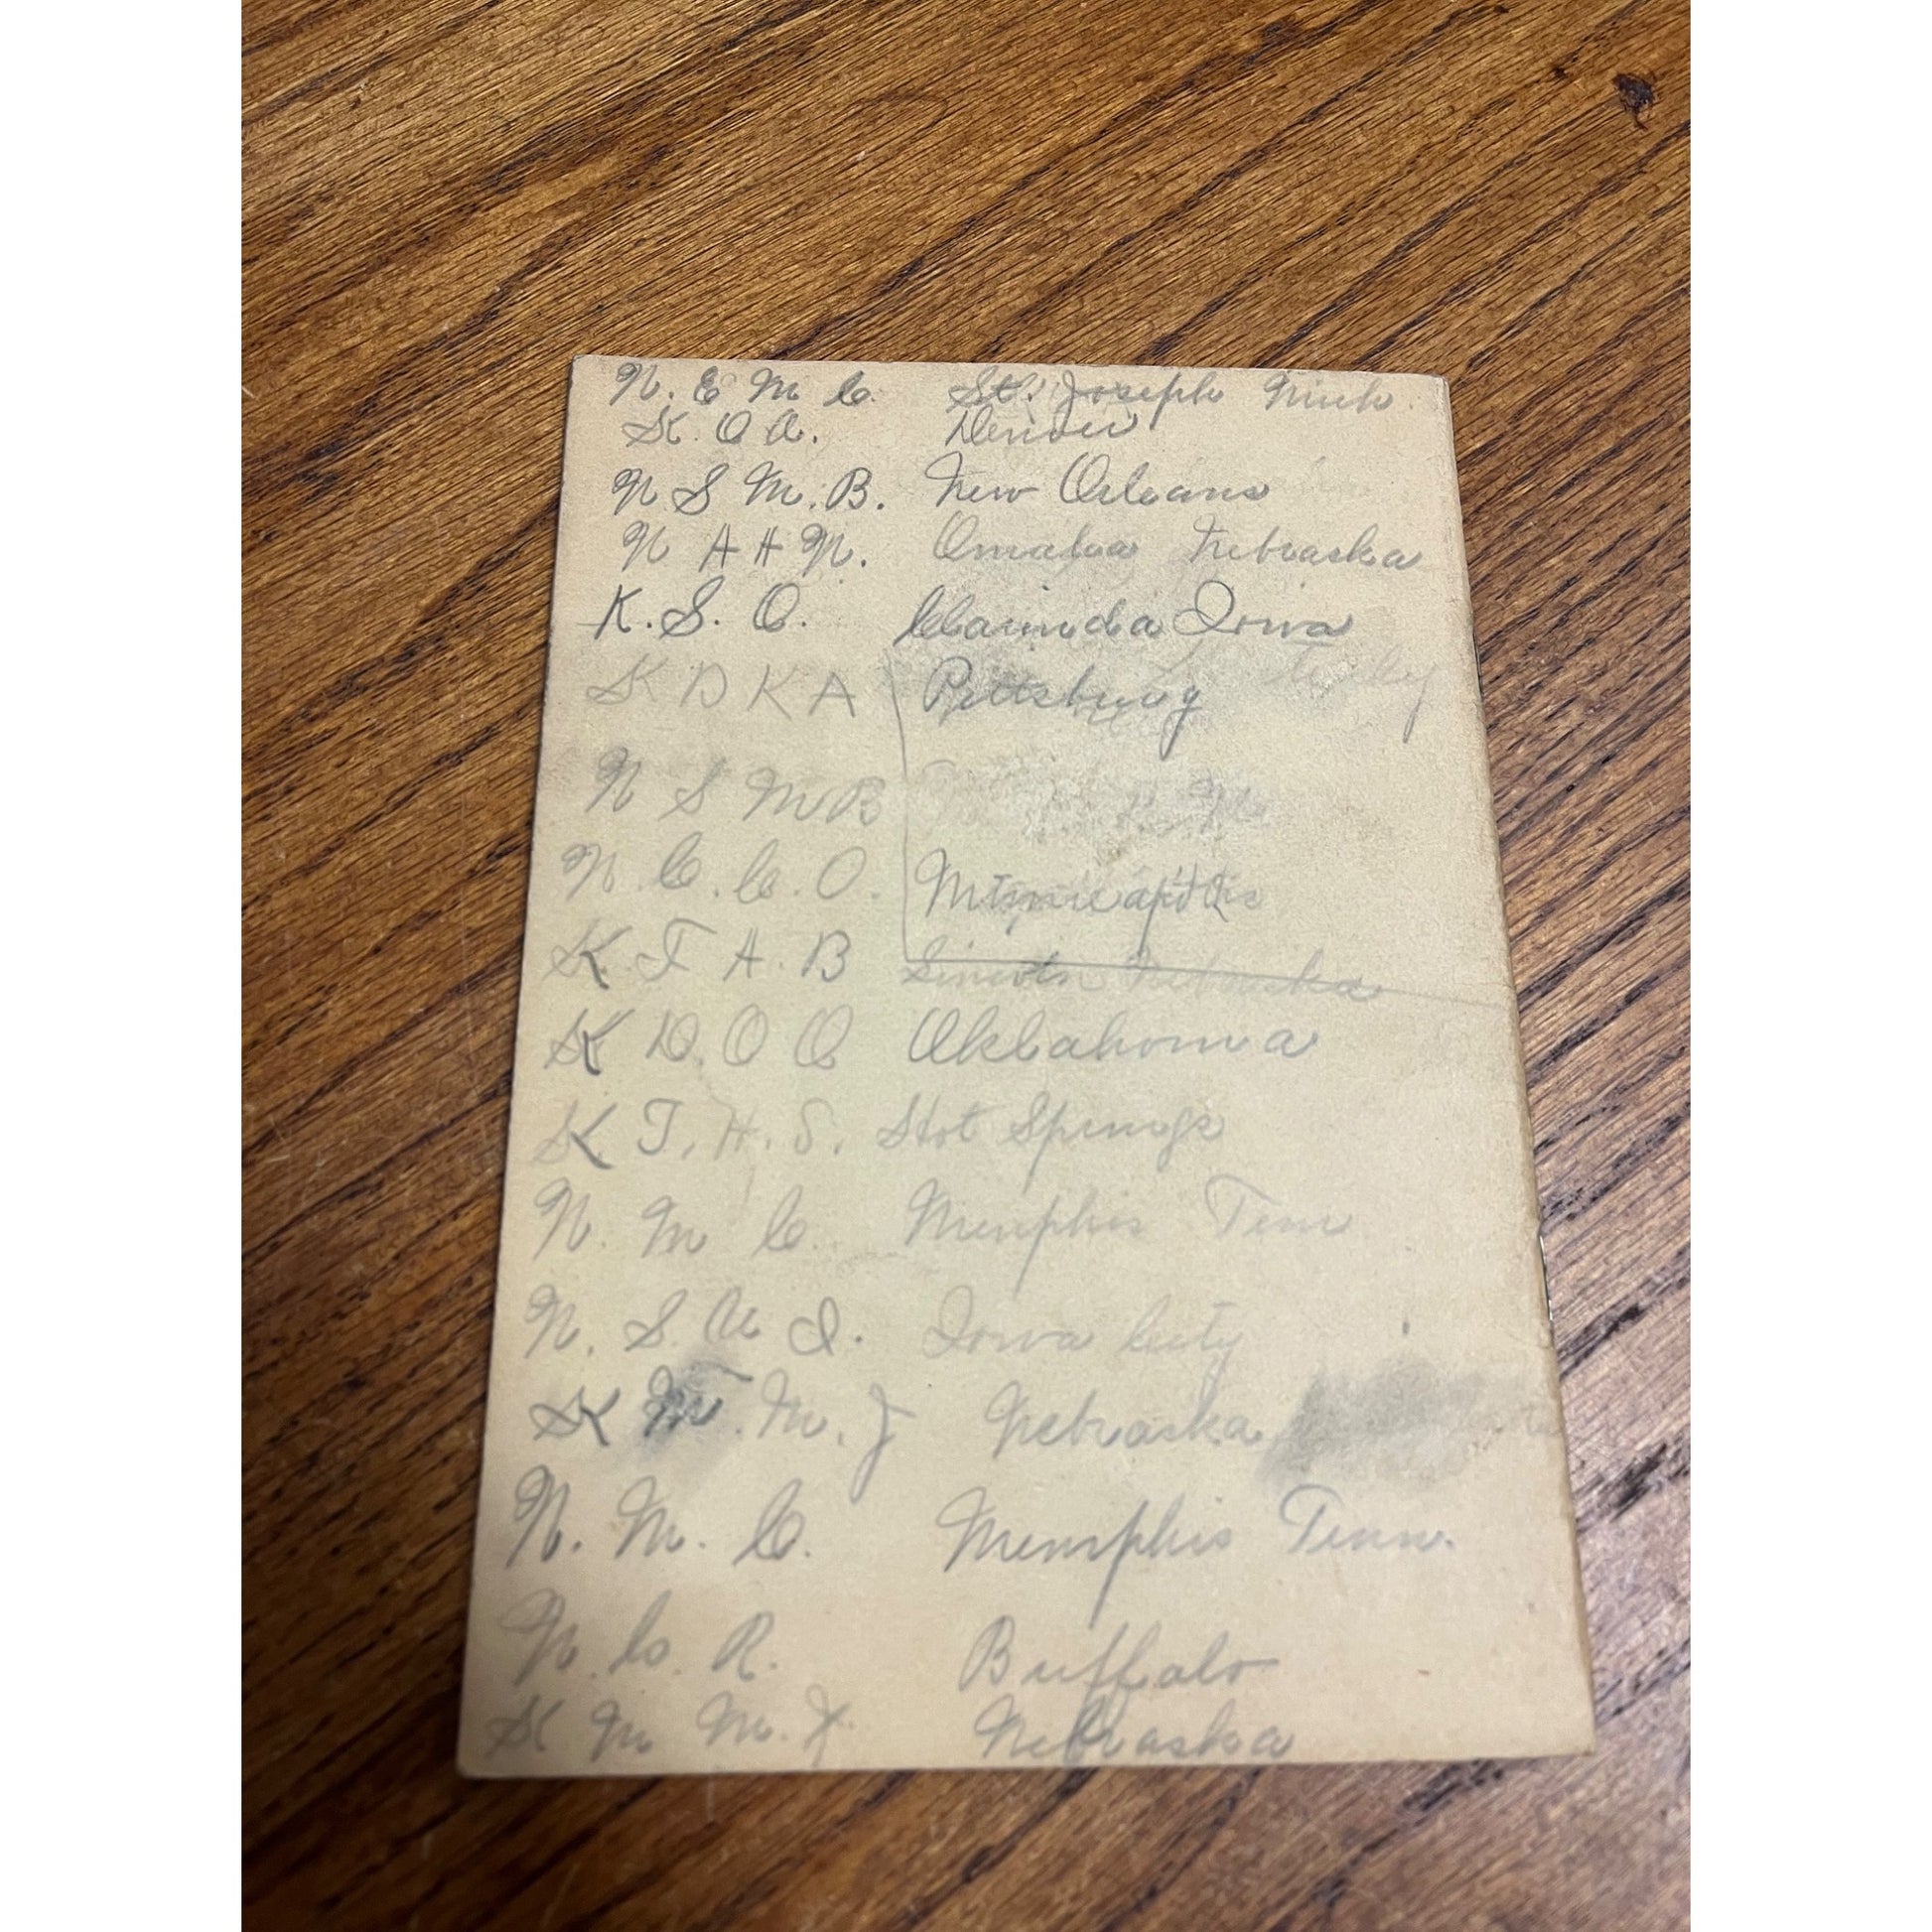 W. E M C. St. Joseph Mich.
K. O A. Denver
W S M. B. New Orleans
W A A W. Omaha Nebraska
K. S. O. Clarinda Iowa
K D K A Pittsburg
W S M B
W. C. C. O. Minneapolis
K. F A. B Lincoln Nebraska
K V. O O Oklahoma
K T. H. S. Hot Springs
W. M C. Memphis Tenn
W. S. U I. Iowa City
K M. M. J Nebraska
W. M. C. Memphis Tenn.
W. G. R. Buffalo
K M M. J. Nebraska